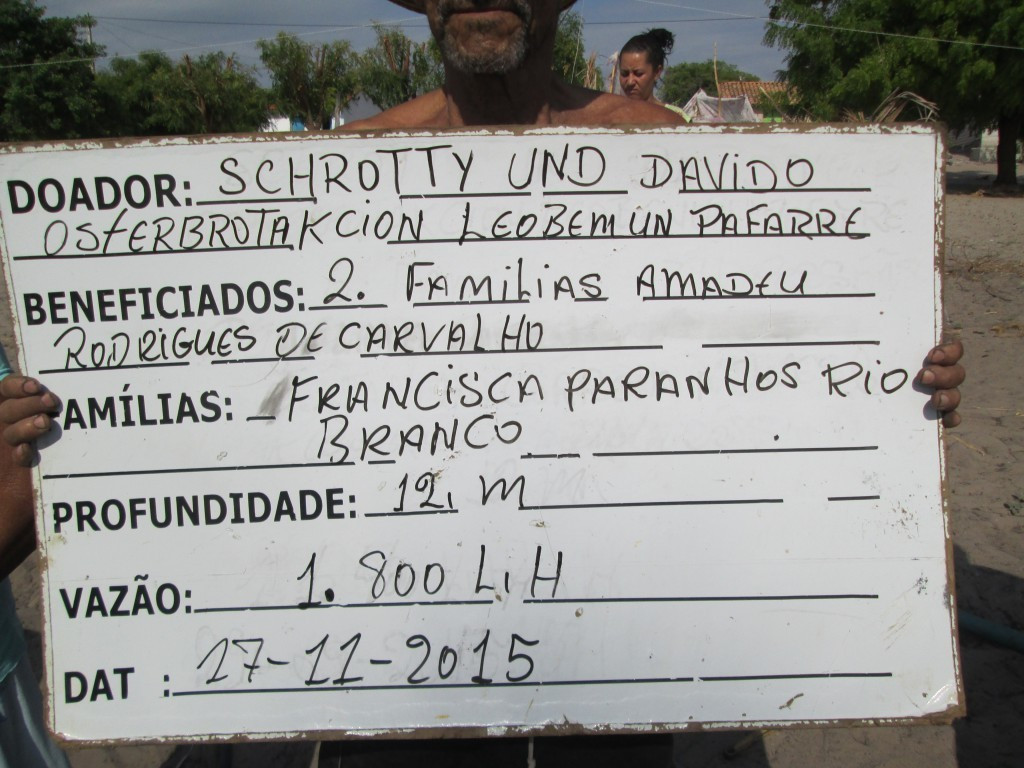 DOADOR: SCHROTTY UND DAVIDO
OSTERBROTAKCION LEOBEMUN PAFARRE
BENEFICIADOS: 2. FAMILIAS AMADEU
RODRIGUES DE CARVALHO
AMÍLIAS: FRANCISCA PARANHOS RIO
BRANCO
PROFUNDIDADE: 12. M
VAZÃO: 1.800 L.H
DAT : 17-11-2015